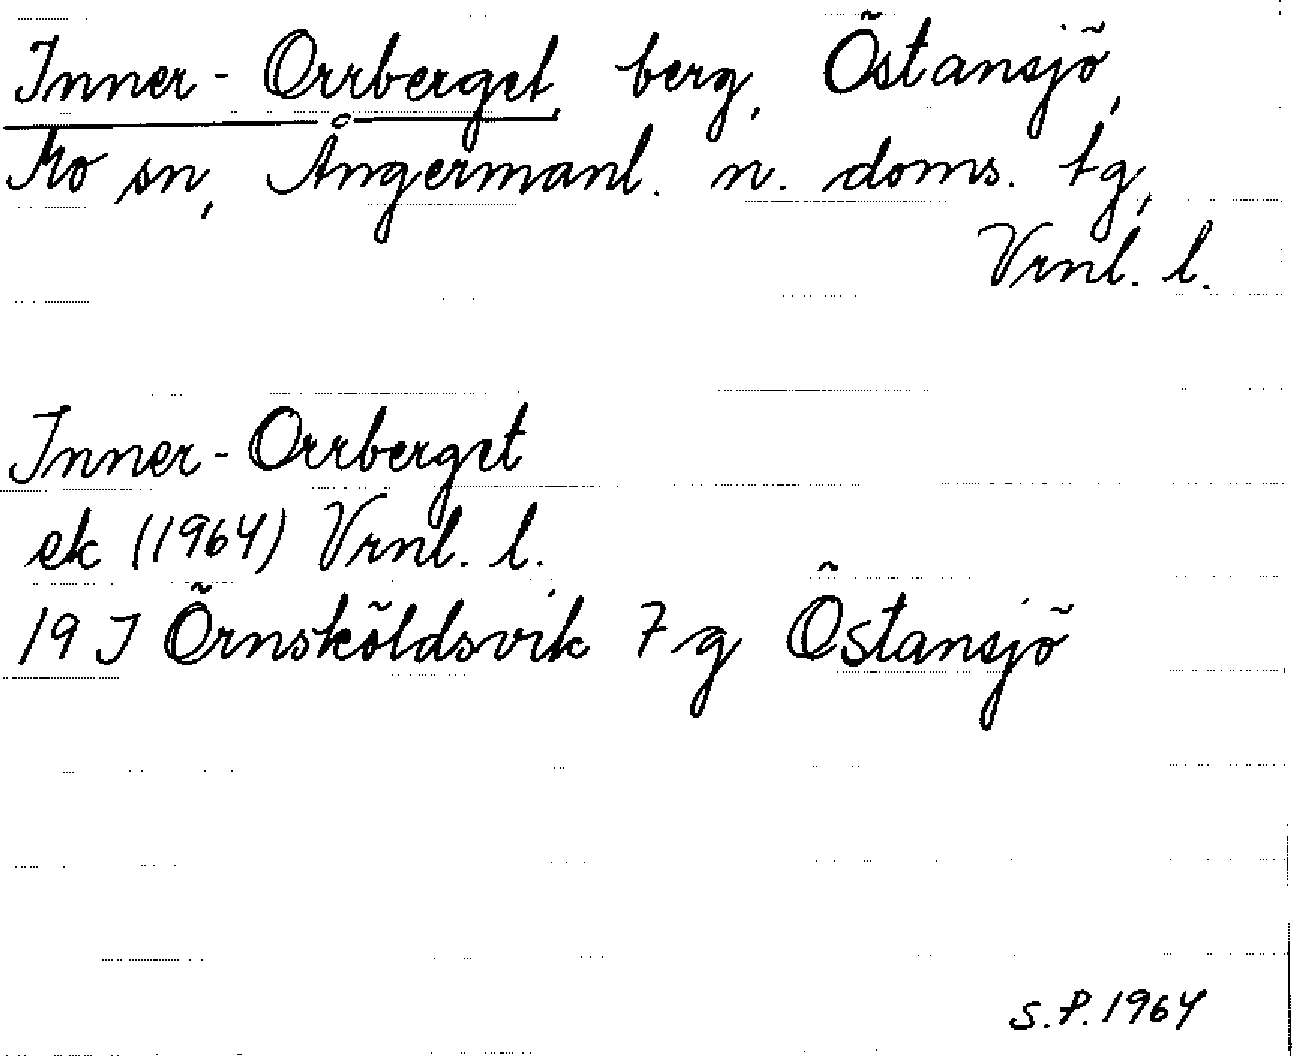 Inner-Orrberget, berg, Östansjö,
Mo sn, Ångermanl. n. doms. tg,
Vrnl. l.
Inner-Orrberget
ek (1964) Vrnl. l.
19 J Örnsköldsvik 7 g Östansjö
S.P. 1964